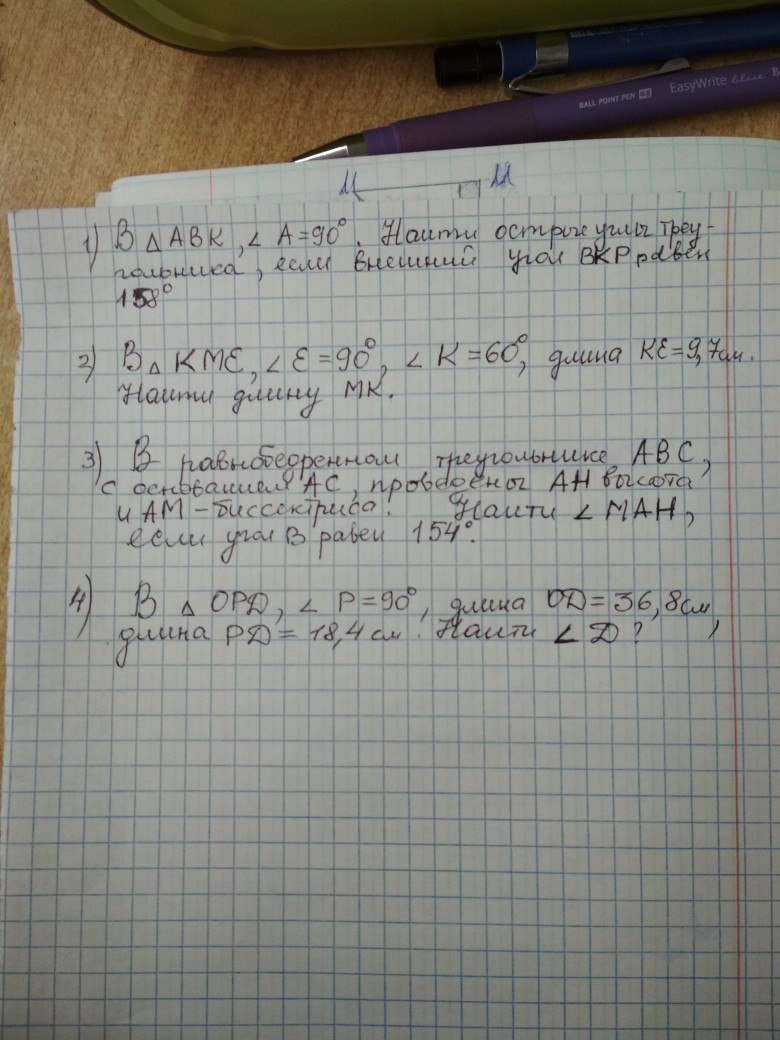 BALL POINT PEN 0.5 EasyWrite blue
1) В △ АВК, ∠ А=90°. Найти острые углы треу-
гольника, если внешний угол ВКР равен
158°
2) В △ КМЕ, ∠ Е=90°, ∠ К=60°, длина КЕ=9,7см.
Найти длину МК.
3) В равнобедренном треугольнике АВС,
с основанием АС, проведены АН высота
и АМ-биссектриса. Найти ∠ МАН,
если угол В равен 154°.
4) В △ ОРD, ∠ Р=90°, длина ОD=36,8см,
длина РD=18,4см. Найти ∠ D?